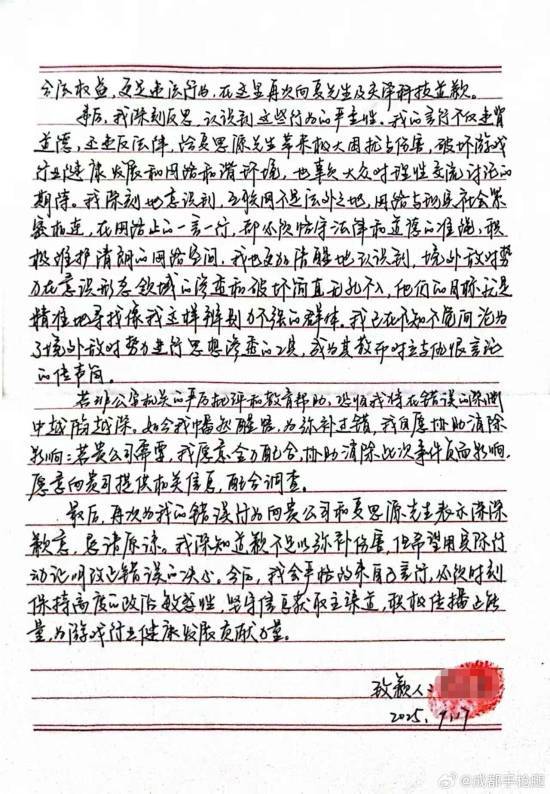 合法权益，更是违法行为，在这里再次向夏先生及灵泽科技道歉。
事后，我深刻反思，认识到这些行为的严重性。我的言行不仅违背
道德，还违反法律，给夏思源先生带来极大困扰与伤害，破坏游戏
行业健康发展和网络和谐环境，也辜负大众对理性交流讨论的
期待。我深刻地意识到，互联网不是法外之地，网络与现实社会紧
密相连，在网络上的一言一行，都必须恪守法律和道德的准绳，积
极维护清朗的网络空间。我也更加清醒地认识到，境外敌对势
力在意识形态领域的渗透和破坏简直无孔不入，他们的目标就是
精准地寻找像我这样辨别力不强的群体。我已在不知不觉间沦为
了境外敌对势力进行思想渗透的工具，成为其散布对立与仇恨言论
的传声筒。
若非公安机关的严厉批评和教育帮助，恐怕我将在错误的深渊
中越陷越深。如今我幡然醒悟，为弥补过错，我自愿协助清除
影响：若贵公司需要，我愿意全力配合，协助清除此次事件负面影响，
愿意向贵司提供相关信息，配合调查。
最后，再次为我的错误行为向贵公司和夏思源先生表示深深
歉意，恳请原谅。我深知道歉不足以弥补伤害，但希望用实际行
动证明改正错误的决心。今后，我会严格约束自己言行，必须时刻
保持高度的政治敏感性，坚守信息获取主渠道，积极传播正能
量，为游戏行业健康发展贡献力量。
致歉人：
2025.9.17
@成都手枪腿